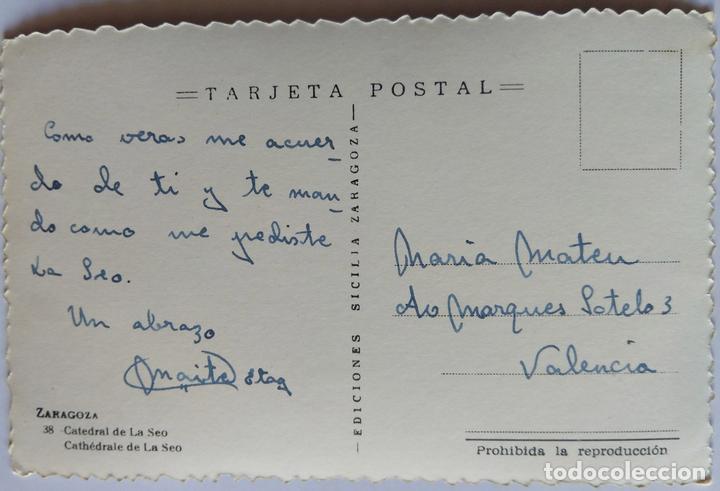 TARJETA POSTAL
Como veras me acuer-
do de ti y te man-
do como me pediste
La Seo.
Un abrazo
Maite
ZARAGOZA
38 Catedral de La Seo
Cathédrale de La Seo
EDICIONES SICILIA ZARAGOZA
Maria Mateu
Av Marques Sotelo 3
Valencia
Prohibida la reproducción
todocoleccion.net